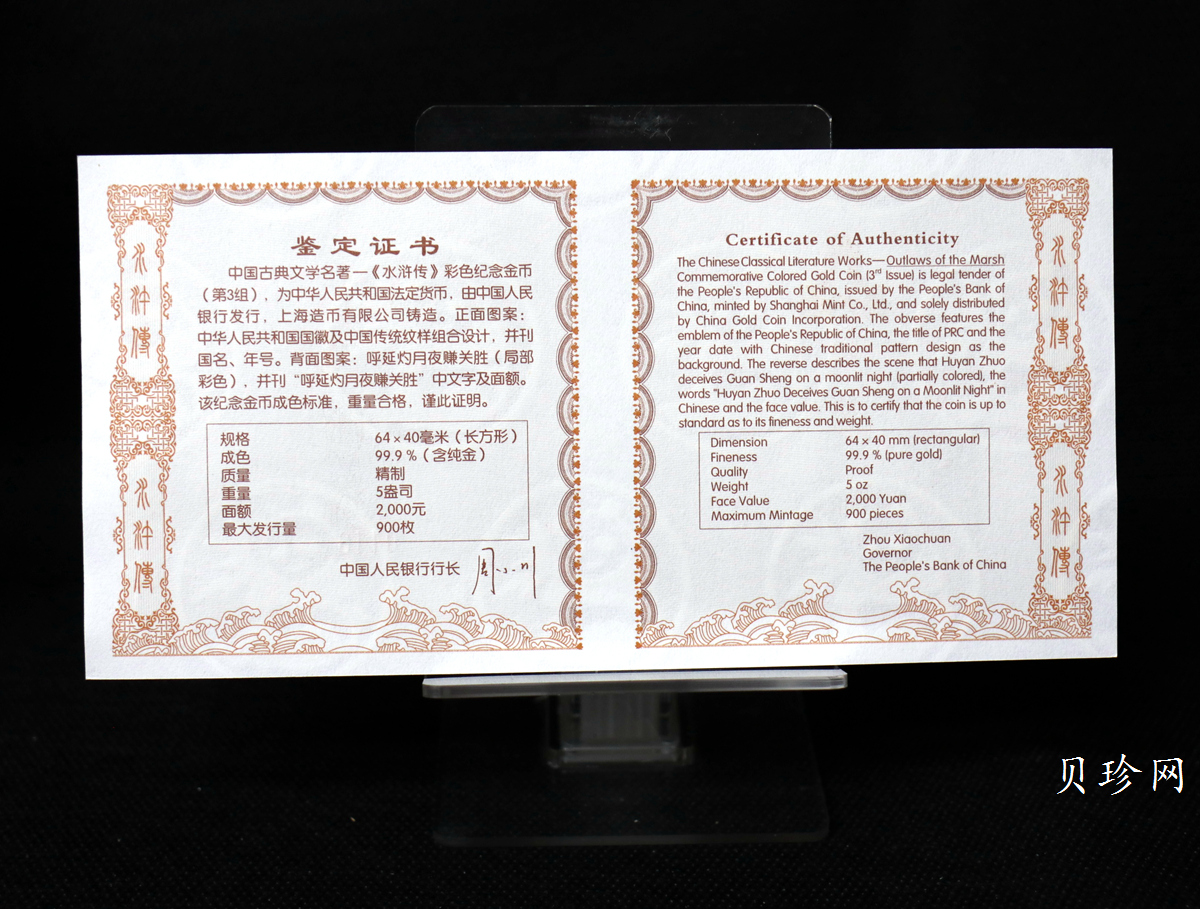 水浒傳
水浒傳
鉴定证书
中国古典文学名著—《水浒传》彩色纪念金币
（第3组），为中华人民共和国法定货币，由中国人民
银行发行，上海造币有限公司铸造。正面图案：
中华人民共和国国徽及中国传统纹样组合设计，并刊
国名、年号。背面图案：呼延灼月夜赚关胜（局部
彩色），并刊“呼延灼月夜赚关胜”中文字及面额。
该纪念金币成色标准，重量合格，谨此证明。
规格 64×40毫米（长方形）
成色 99.9％（含纯金）
质量 精制
重量 5盎司
面额 2,000元
最大发行量 900枚
中国人民银行行长 周小川
Certificate of Authenticity
The Chinese Classical Literature Works—Outlaws of the Marsh
Commemorative Colored Gold Coin (3rd Issue) is legal tender of
the People's Republic of China, issued by the People's Bank of
China, minted by Shanghai Mint Co., Ltd., and solely distributed
by China Gold Coin Incorporation. The obverse features the
emblem of the People's Republic of China, the title of PRC and the
year date with Chinese traditional pattern design as the
background. The reverse describes the scene that Huyan Zhuo
deceives Guan Sheng on a moonlit night (partially colored), the
words "Huyan Zhuo Deceives Guan Sheng on a Moonlit Night" in
Chinese and the face value. This is to certify that the coin is up to
standard as to its fineness and weight.
Dimension 64 × 40 mm (rectangular)
Fineness 99.9 % (pure gold)
Quality Proof
Weight 5 oz
Face Value 2,000 Yuan
Maximum Mintage 900 pieces
Zhou Xiaochuan
Governor
The People's Bank of China
水浒傳
水浒傳
贝珍网